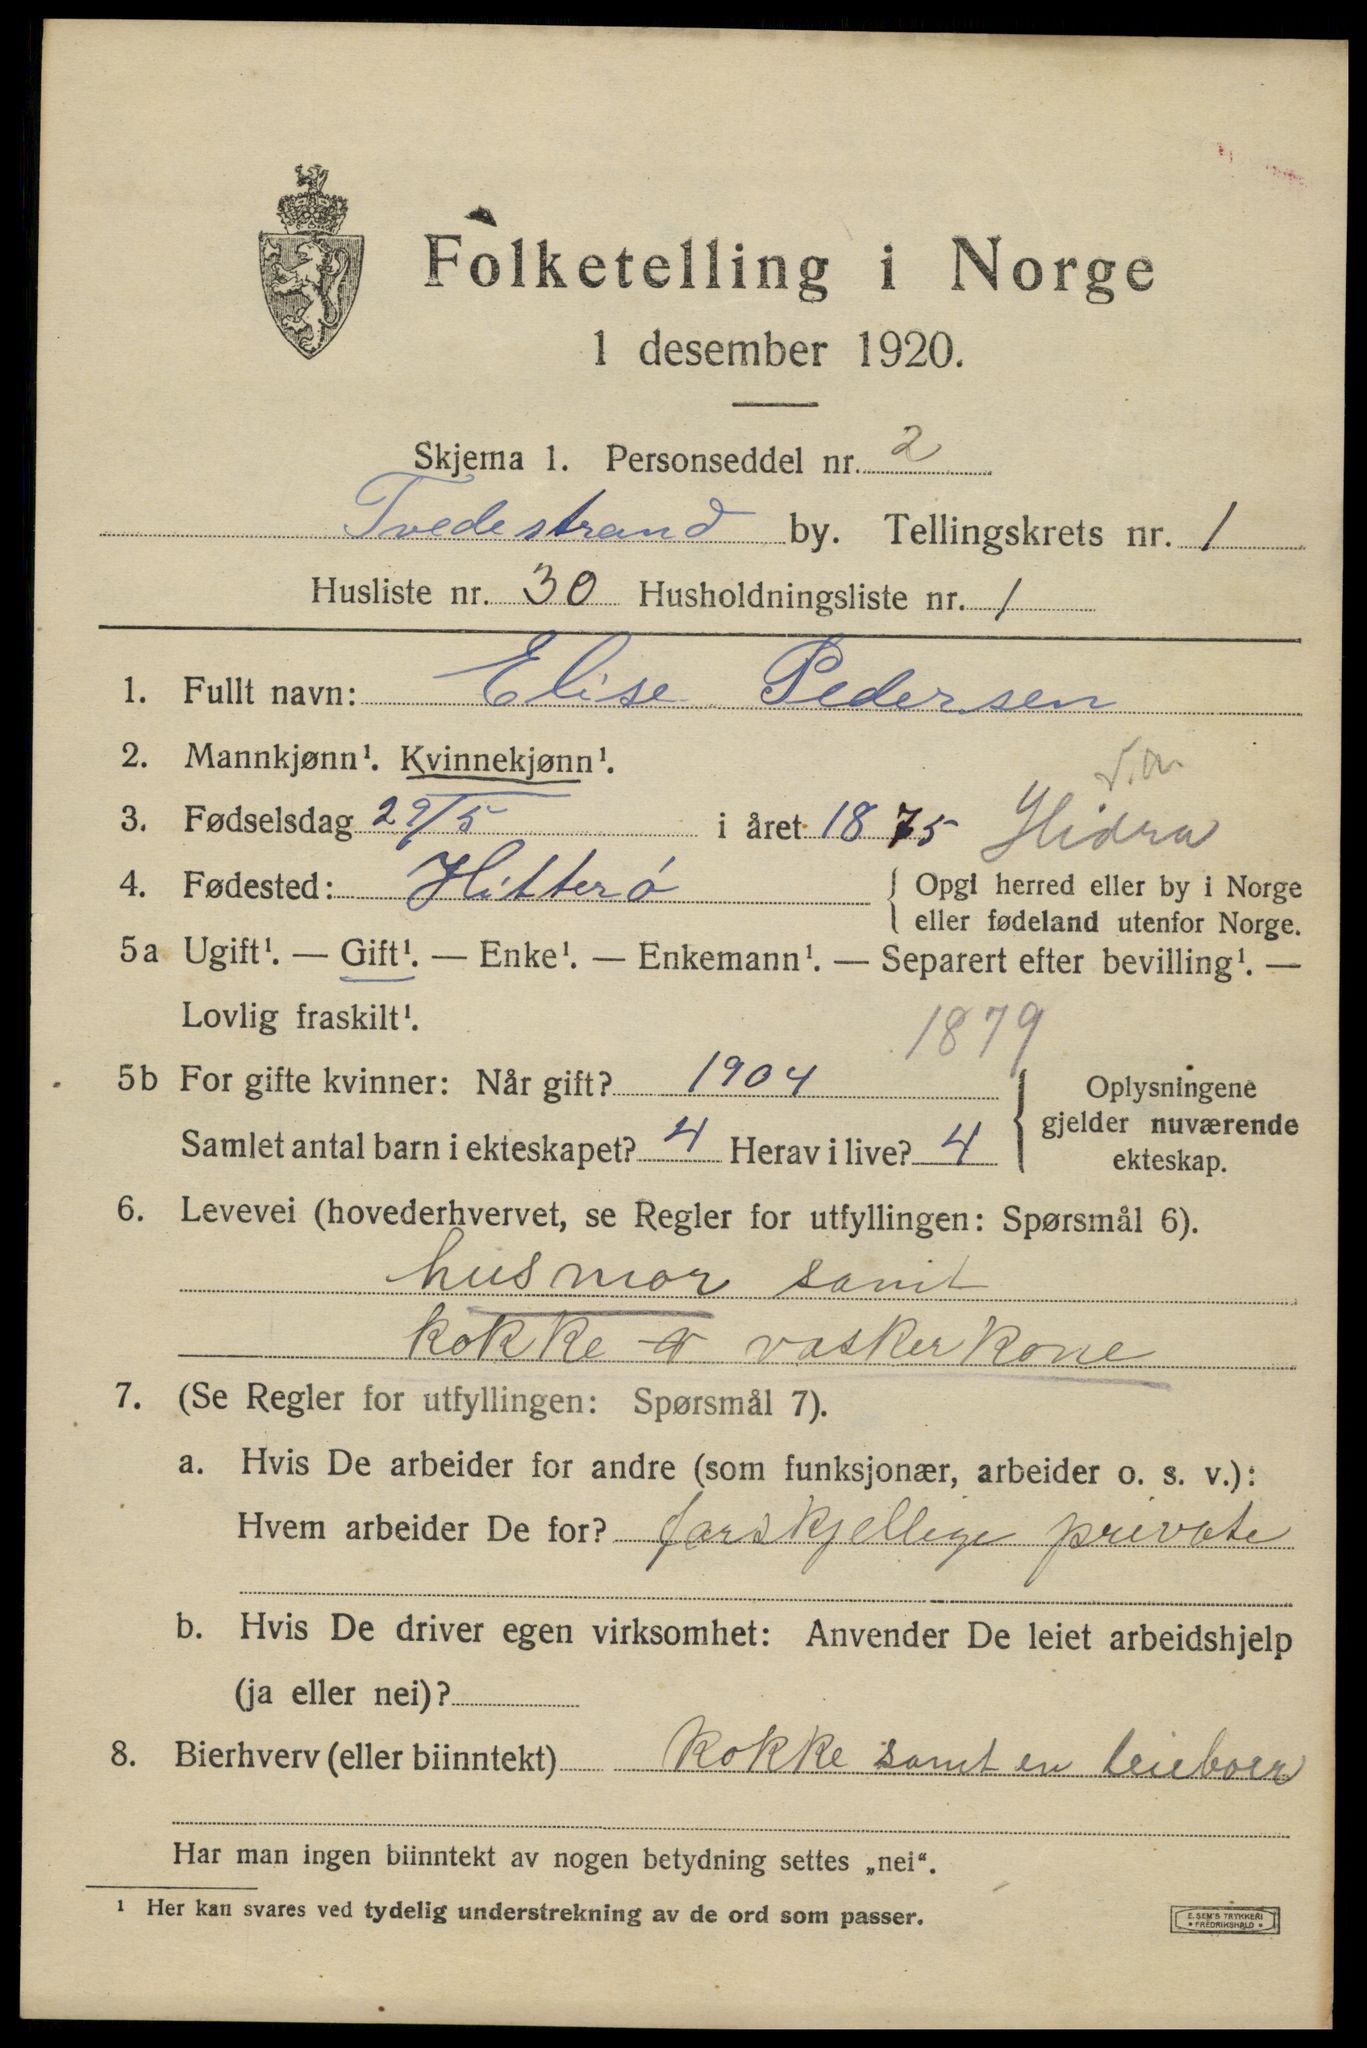 Folketelling i Norge
1 desember 1920.
Skjema 1. Personseddel nr. 2
Tvedestrand by. Tellingskrets nr. 1
Husliste nr. 30 Husholdningsliste nr. 1
1. Fullt navn: Elise Pedersen
2. Mannkjønn¹. Kvinnekjønn¹.
3. Fødselsdag 29/5 i året 1875 Hidra
4. Fødested: Hitterö { Opgi herred eller by i Norge
eller fødeland utenfor Norge.
5a Ugift¹. — Gift¹. — Enke¹. — Enkemann¹. — Separert efter bevilling¹. —
Lovlig fraskilt¹.
1879
5b For gifte kvinner: Når gift? 1904
Samlet antal barn i ekteskapet? 4 Herav i live? 4
{ Oplysningene
gjelder nuværende
ekteskap.
6. Levevei (hovederhvervet, se Regler for utfyllingen: Spørsmål 6).
husmor samt
kokke vaskerkone
7. (Se Regler for utfyllingen: Spørsmål 7).
a. Hvis De arbeider for andre (som funksjonær, arbeider o. s. v.):
Hvem arbeider De for? forskjellige private
b. Hvis De driver egen virksomhet: Anvender De leiet arbeidshjelp
(ja eller nei)?
8. Bierhverv (eller biinntekt) kokke samt en leieboer
Har man ingen biinntekt av nogen betydning settes „nei“.
¹ Her kan svares ved tydelig understrekning av de ord som passer.
E. SEM'S TRYKKERI
• FREDRIKSHALD •